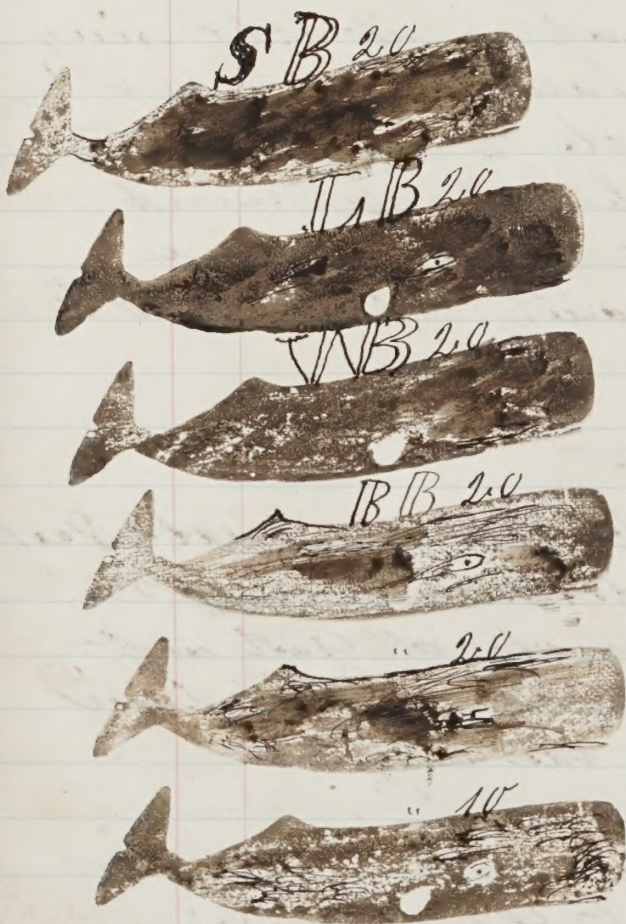 S B 20
L B 20
W B 20
B B 20
" 20
" 10